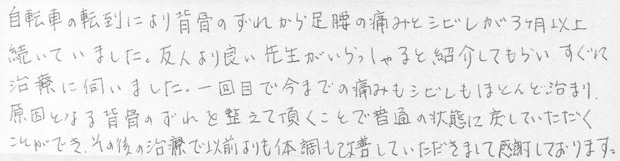 自転車の転到により背骨のずれから足腰の痛みとシビレが3ヶ月以上
続いていました。友人より良い先生がいらっしゃると紹介してもらいすぐに
治療に伺いました。一回目で今までの痛みもシビレもほとんど治まり、
原因となる背骨のずれを整えて頂くことで普通の状態に戻していただく
ことができ、その後の治療で以前よりも体調も改善していただきまして感謝しております。